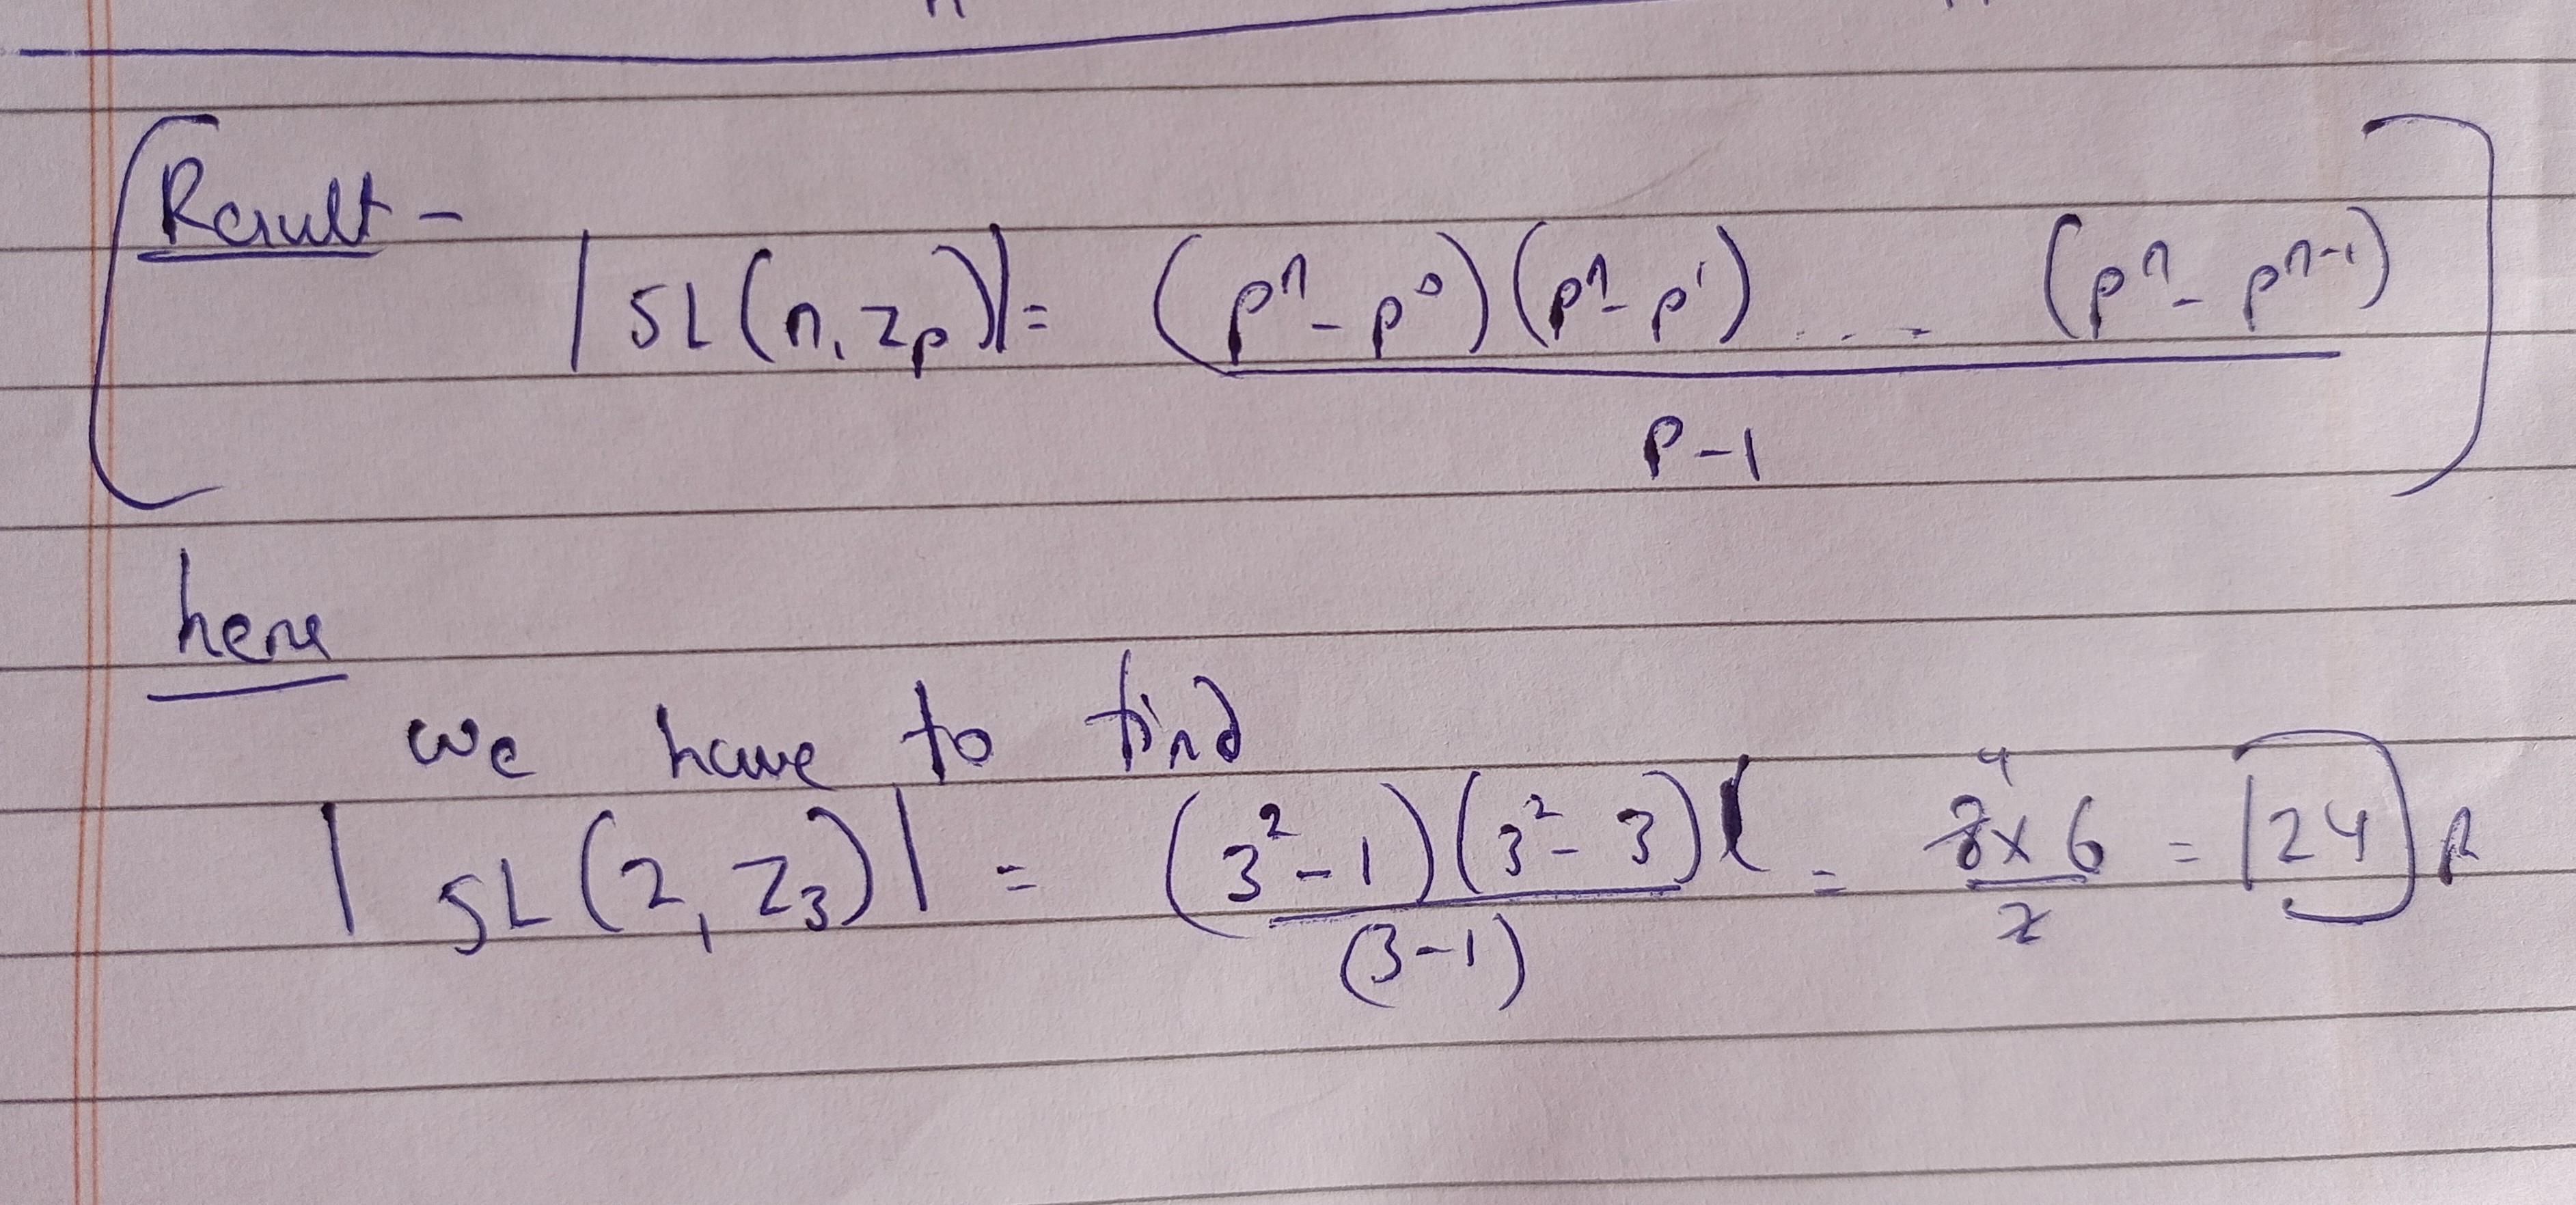 Result -
|SL(n, Zp)| = (p^n - p^0)(p^n - p^1) .... (p^n - p^(n-1)) / p-1
here
we have to find
|SL(2, Z3)| = (3^2 - 1)(3^2 - 3) / (3-1) = 8 4 x 6 / 2 = 24